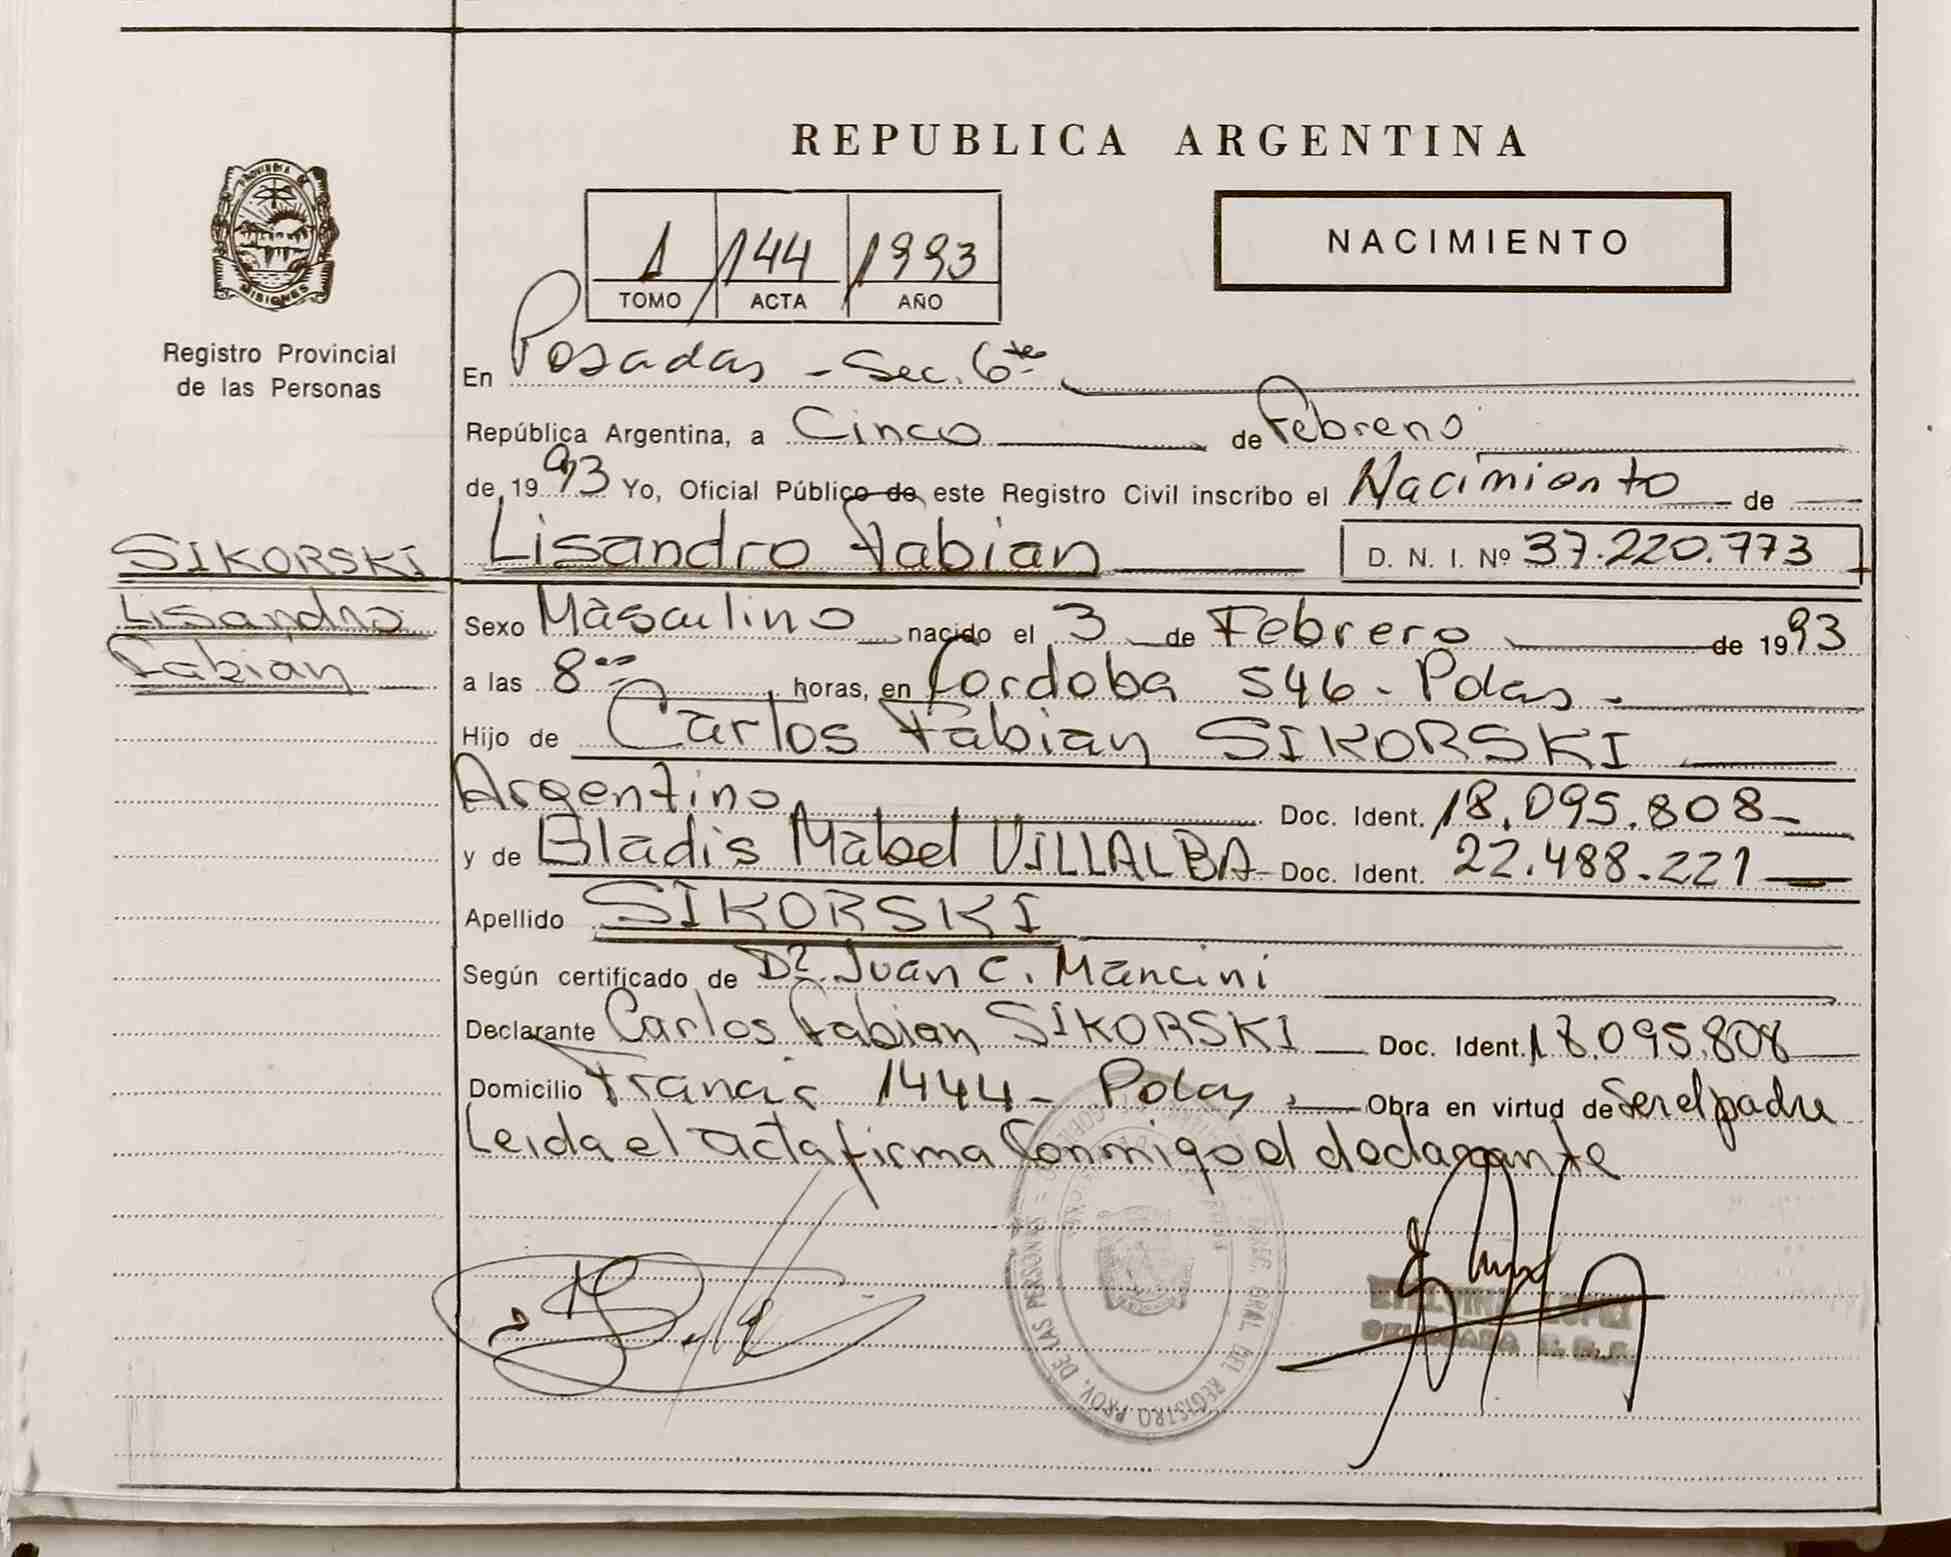 REPUBLICA ARGENTINA
PROVINCIA DE
MISIONES
Registro Provincial
de las Personas
1 144 1993
TOMO ACTA AÑO
NACIMIENTO
En Posadas - Sec. 6ta
República Argentina, a Cinco de Febrero
de 1993 Yo, Oficial Público de este Registro Civil inscribo el Nacimiento de
Lisandro Fabian D. N. I. Nº 37.220.773
SIKORSKI
Lisandro
Fabian
Sexo Masculino nacido el 3 de Febrero de 1993
a las 8 horas, en Cordoba 546 - Pdas -
Hijo de Carlos Fabian SIKORSKI
Argentino Doc. Ident. 18.095.808
y de Gladis Mabel VILLALBA Doc. Ident. 22.488.221
Apellido SIKORSKI
Según certificado de Dr. Juan C. Mancini
Declarante Carlos Fabian SIKORSKI Doc. Ident. 18.095.808
Domicilio Francia 1444 - Pdas Obra en virtud de Ser el padre
Leida el acta firma Conmigo el declarante
DIREC. GRAL. DEL REGISTRO PROV. DE LAS PERSONAS